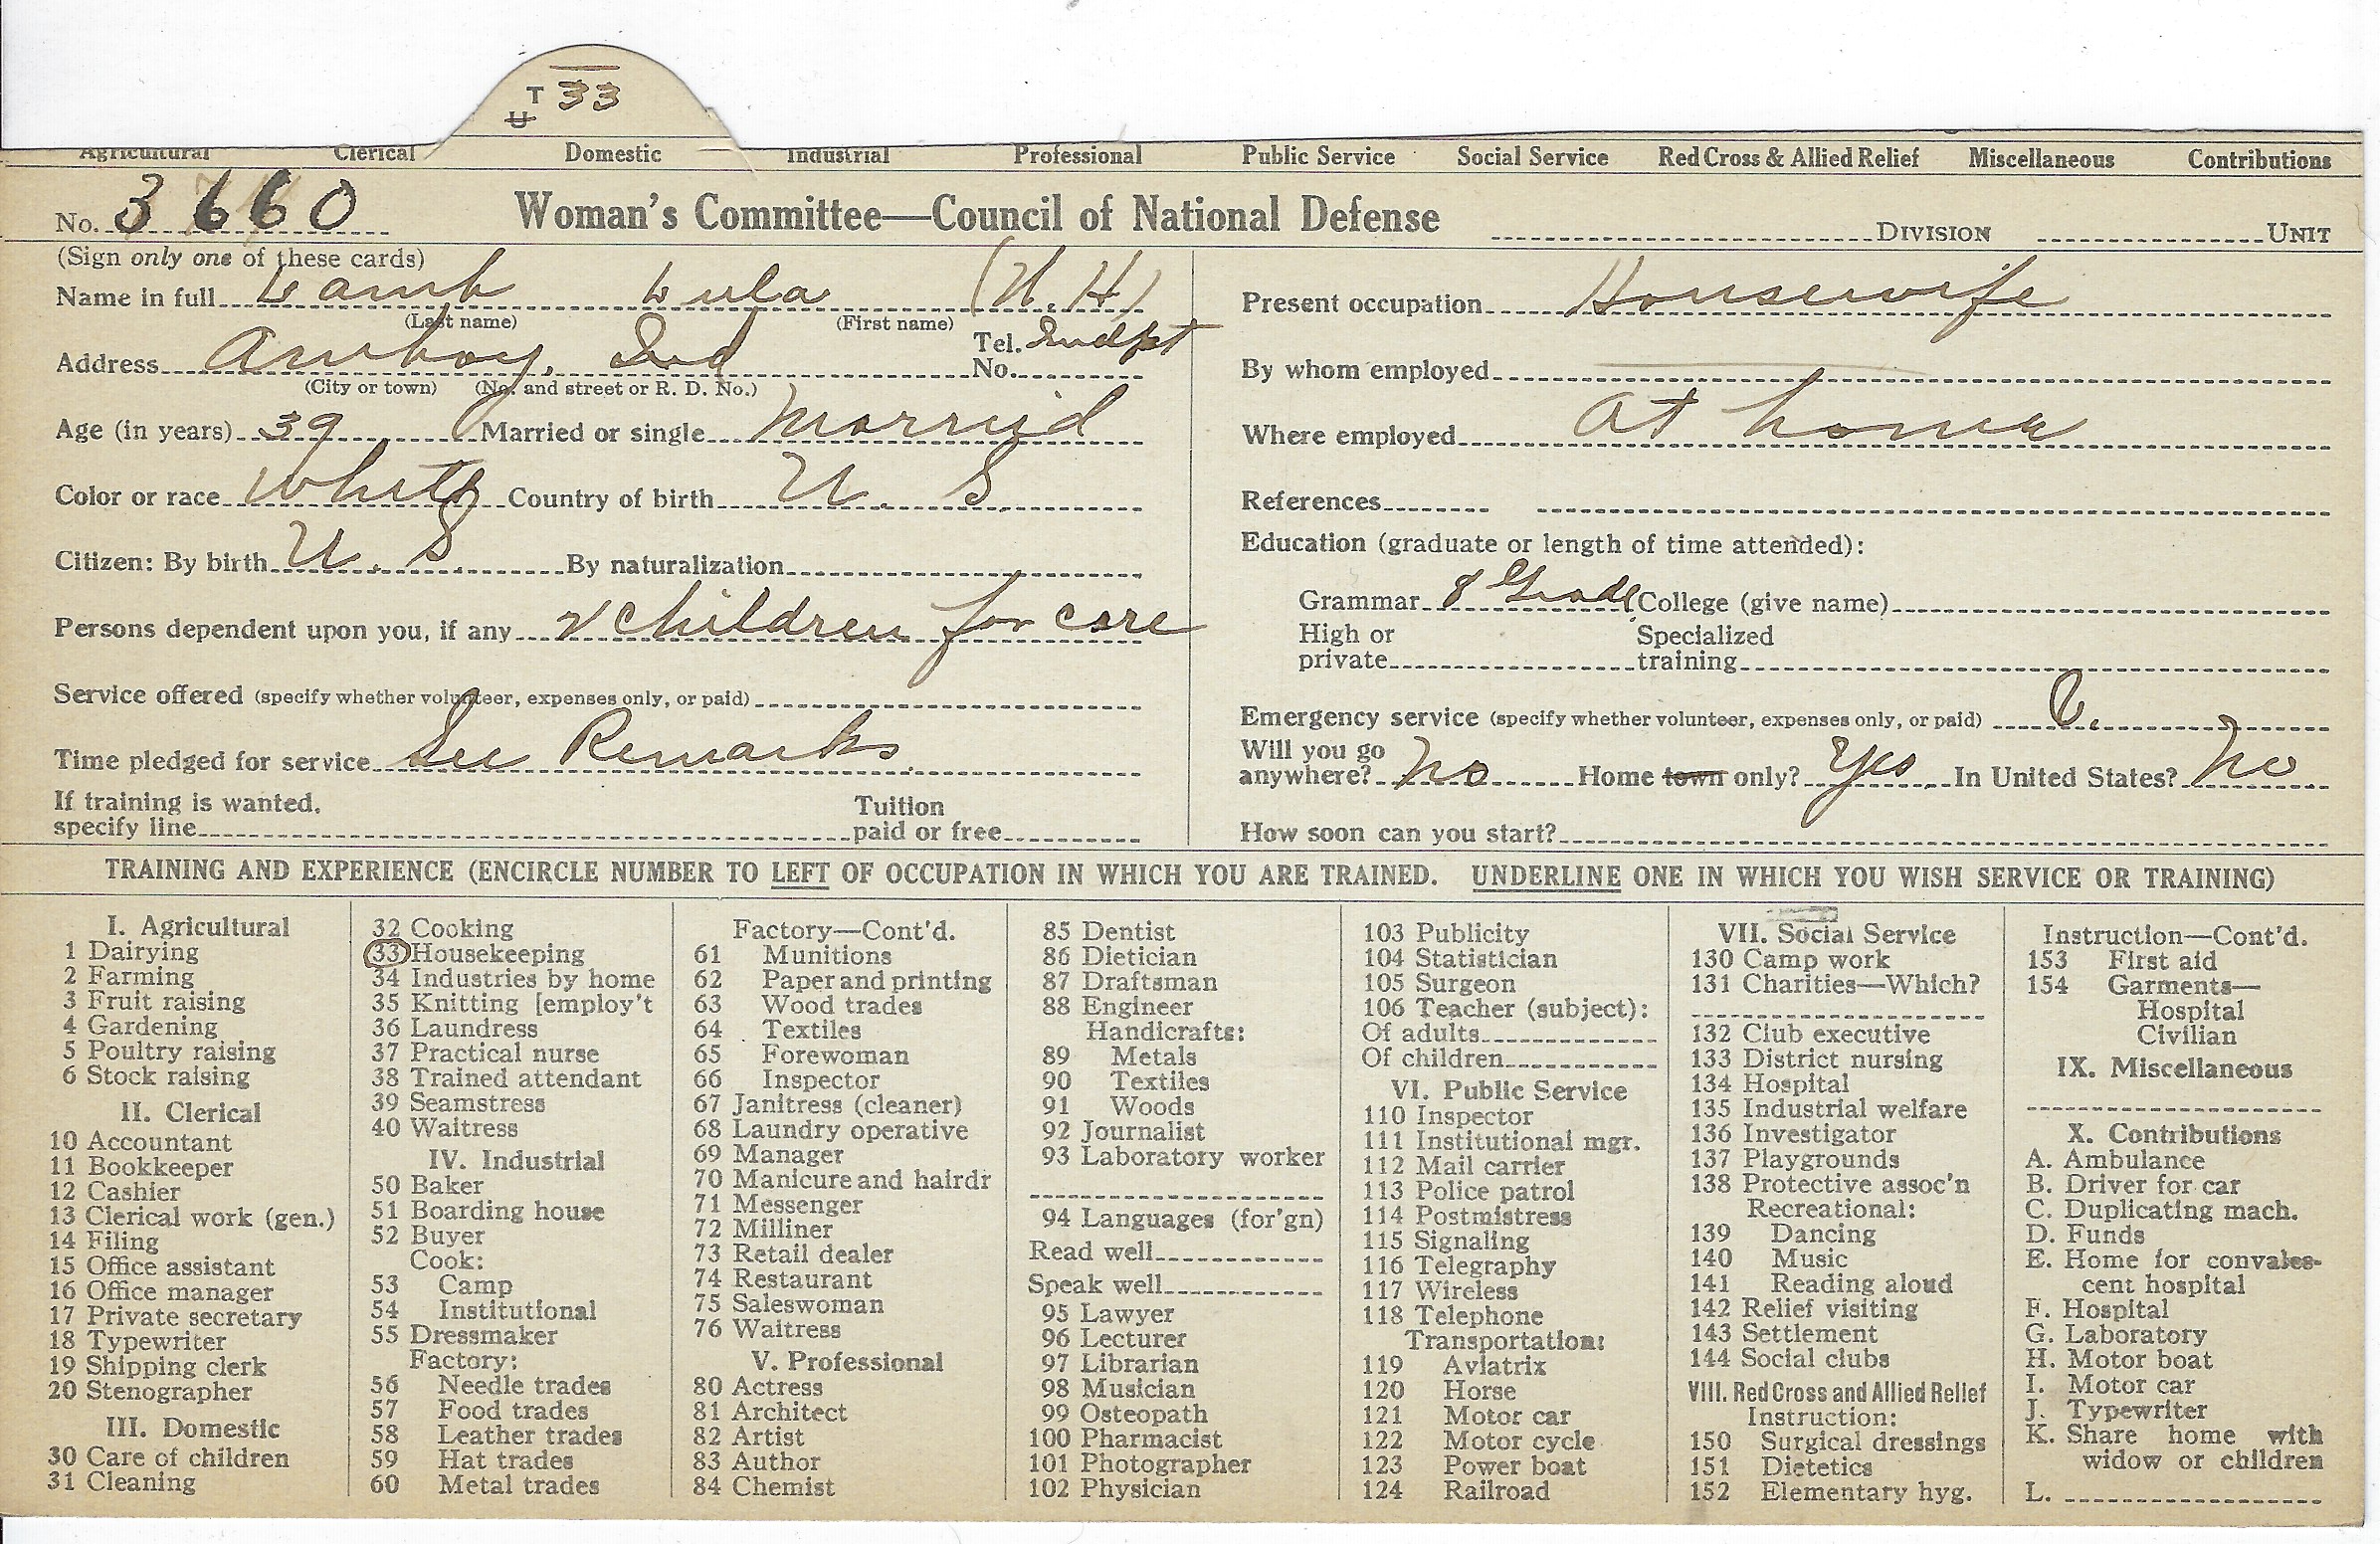 T 33
U
Agricultural Clerical Domestic Industrial Professional Public Service Social Service Red Cross & Allied Relief Miscellaneous Contributions
No. 3660 Woman's Committee—Council of National Defense DIVISION UNIT
(Sign only one of these cards)
Name in full Lamb Lula
(Last name) (First name)
Address Amboy, Ind Tel. No. Indpt
(City or town) (No. and street or R. D. No.)
Age (in years) 39 Married or single Married
Color or race White Country of birth U. S.
Citizen: By birth U. S. By naturalization
Persons dependent upon you, if any 2 children for care
Service offered (specify whether volunteer, expenses only, or paid)
Time pledged for service See Remarks.
If training is wanted, specify line Tuition paid or free
Present occupation Housewife
By whom employed
Where employed At home
References
Education (graduate or length of time attended):
Grammar 8 Grade College (give name)
High or private Specialized training
Emergency service (specify whether volunteer, expenses only, or paid)
Will you go anywhere? No Home town only? Yes In United States? No
How soon can you start?
TRAINING AND EXPERIENCE (ENCIRCLE NUMBER TO LEFT OF OCCUPATION IN WHICH YOU ARE TRAINED. UNDERLINE ONE IN WHICH YOU WISH SERVICE OR TRAINING)
I. Agricultural
1 Dairying
2 Farming
3 Fruit raising
4 Gardening
5 Poultry raising
6 Stock raising
II. Clerical
10 Accountant
11 Bookkeeper
12 Cashier
13 Clerical work (gen.)
14 Filing
15 Office assistant
16 Office manager
17 Private secretary
18 Typewriter
19 Shipping clerk
20 Stenographer
III. Domestic
30 Care of children
31 Cleaning
32 Cooking
33 Housekeeping
34 Industries by home
35 Knitting [employ't
36 Laundress
37 Practical nurse
38 Trained attendant
39 Seamstress
40 Waitress
IV. Industrial
50 Baker
51 Boarding house
52 Buyer
Cook:
53 Camp
54 Institutional
55 Dressmaker
Factory:
56 Needle trades
57 Food trades
58 Leather trades
59 Hat trades
60 Metal trades
Factory—Cont'd.
61 Munitions
62 Paper and printing
63 Wood trades
64 Textiles
65 Forewoman
66 Inspector
67 Janitress (cleaner)
68 Laundry operative
69 Manager
70 Manicure and hairdr
71 Messenger
72 Milliner
73 Retail dealer
74 Restaurant
75 Saleswoman
76 Waitress
V. Professional
80 Actress
81 Architect
82 Artist
83 Author
84 Chemist
85 Dentist
86 Dietician
87 Draftsman
88 Engineer
Handicrafts:
89 Metals
90 Textiles
91 Woods
92 Journalist
93 Laboratory worker
94 Languages (for'gn)
Read well
Speak well
95 Lawyer
96 Lecturer
97 Librarian
98 Musician
99 Osteopath
100 Pharmacist
101 Photographer
102 Physician
103 Publicity
104 Statistician
105 Surgeon
106 Teacher (subject):
Of adults
Of children
VI. Public Service
110 Inspector
111 Institutional mgr.
112 Mail carrier
113 Police patrol
114 Postmistress
115 Signaling
116 Telegraphy
117 Wireless
118 Telephone
Transportation:
119 Aviatrix
120 Horse
121 Motor car
122 Motor cycle
123 Power boat
124 Railroad
VII. Social Service
130 Camp work
131 Charities—Which?
132 Club executive
133 District nursing
134 Hospital
135 Industrial welfare
136 Investigator
137 Playgrounds
138 Protective assoc'n
Recreational:
139 Dancing
140 Music
141 Reading aloud
142 Relief visiting
143 Settlement
144 Social clubs
VIII. Red Cross and Allied Relief
Instruction:
150 Surgical dressings
151 Dietetics
152 Elementary hyg.
Instruction—Cont'd.
153 First aid
154 Garments—
Hospital
Civilian
IX. Miscellaneous
X. Contributions
A. Ambulance
B. Driver for car
C. Duplicating mach.
D. Funds
E. Home for convales-
cent hospital
F. Hospital
G. Laboratory
H. Motor boat
I. Motor car
J. Typewriter
K. Share home with
widow or children
L.